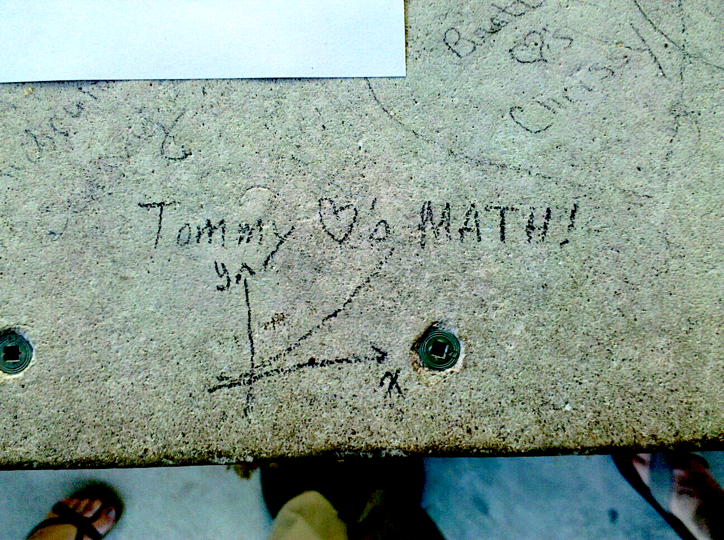 Brett
♡'s
Chrissy
Tommy ♡'s MATH!
y
x